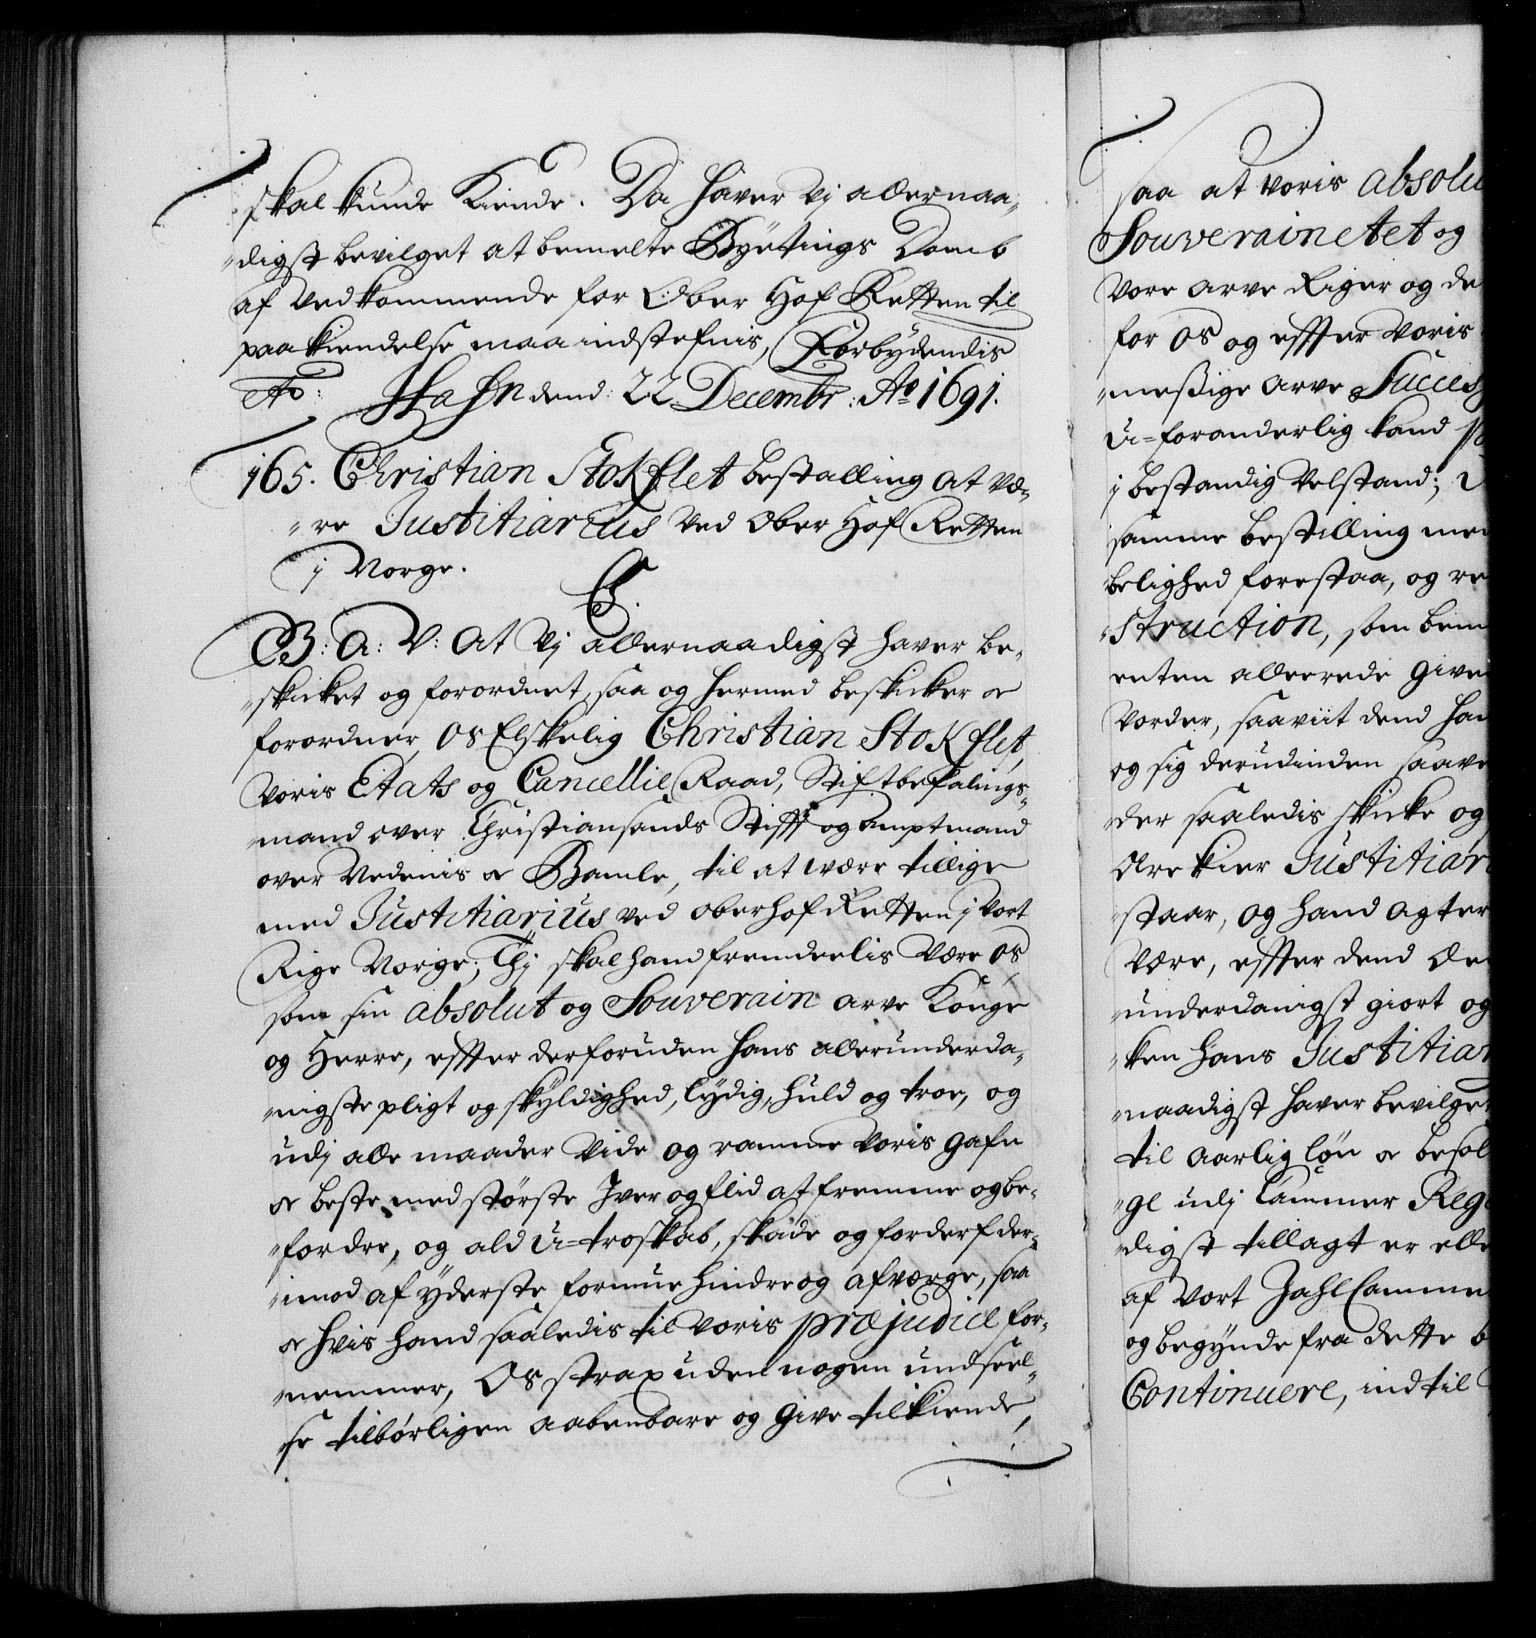 skal kunde Kiende. Da hafver Vj allernaa„
„digst bevilget at bemelte Byetings Domb
af Vedkommende for Ober Hof Retten til
paakiendelse maa indstefnis, Forbydendis
etc: Hafn dend: 22 Decembr: Ao 1691.
165. Christian Stokflet bestalling at væ„
„re Justitiarius Ved Ober Hof Retten
j Norge.
C.
G: A: V: At Vj allernaadigst hafver be„
„skicket og forordnet, saa og hermed beskicker og
forordner, Os Elskelig Christian Stokflet,
Voris Etats og Cancellie Raad, Stiftbefalings„
„mand over Christiansands Stifft og Amptmand
over Nedenis og Bamle, til at være tillige
med Justitiarius ved Oberhof Retten j Vort
Rige Norge; Thj skal hand fremdeelis Være Os
som sin absolut og Souverain Arve Konge
og Herre, effter derforuden hans allerunderda„
„nigste pligt og skyldighed, lydig, huld og troe, og
udj alle maader Vide og ramme Voris gafn
og beste med største Jver og flid at fremme og be„
„fordre, og ald U=troskab, skade og forderf der„
„imod af yderste formue hindre og afværge, saa
og hvis hand saaledis til Voris præjudice for„
nemmer, Os strax uden nogen undseel„
se tilbørligen aabenbare og give tilkiende,
saa at Voris absolu
Souverainetet og
Vore Arve Riger og de
for Os og effter Voris
„meßige Arve Success
U=foranderlig kand
j bestandig Velstand;
samme bestilling me
belighed forestaa, og re
„struction, som bem
enten allereede given
Vorder, saaviit dend ham
og sig derudinden saave
„der saaledis skicke og
Are skier Justitiar
staar, og hand agter
Være, effter dend
underdanigst giort og
„ken hans Justitiar
„naadigst hafver bevilget
til Aarlig løn og besol
„ge udj Cammer Reg
„digst tillagt er elle
af Vort Zahl Camme
og begynde fra dette b
Continuere, indtil